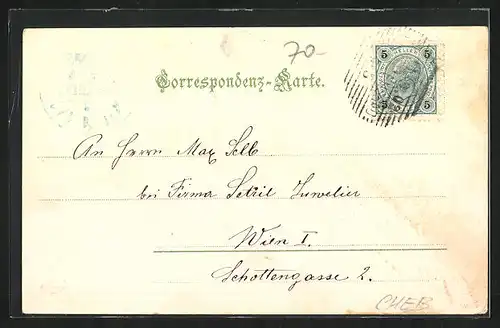 70-
5 5
5 5
Correspondenz-Karte.
An Herrn Max Selb
bei Firma Juwelier
Wien I.
Schottengasse 2.
CHEB